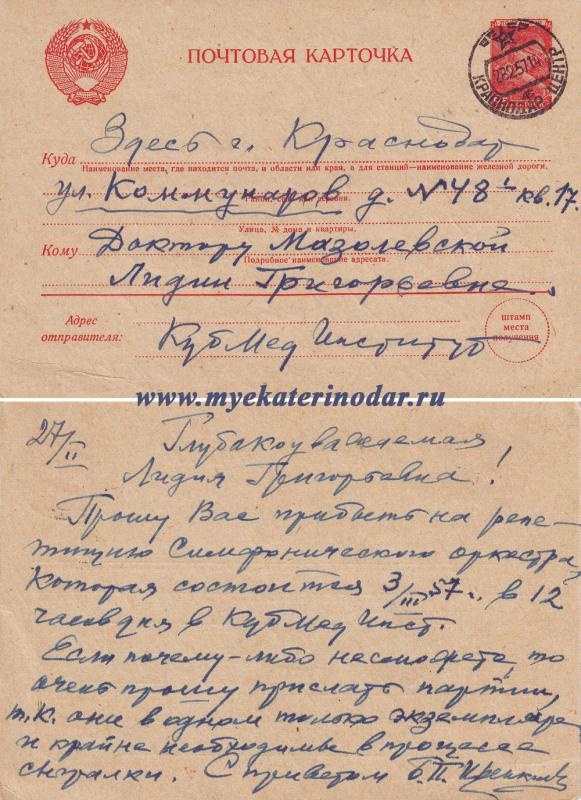 ПОЧТОВАЯ КАРТОЧКА
КРАСНОДАР ЦЕНТР
Куда Здесь г. Краснодар
Наименование места, где находится почта, и области или края, а для станций—наименование железной дороги.
ул. Коммунаров д. №48 кв. 17.
Улица, № дома и квартиры.
Кому Доктору Мазолевской
Подробное наименование адресата.
Лидии Григорьевне.
Адрес
отправителя: КубМед Институт
штамп
места
получения
www.myekaterinodar.ru
27/II Глубакоуважаемая
Лидия Григорьевна!
Прошу Вас прибыть на репе-
тицию Симфонического оркестра,
которая состоится 3/III 57 г. в 12
часов дня в КубМед Инст.
Если почему-либо несможете, то
очень прошу прислать партии,
т.к. они в одном только экземпляре
и крайне необходимы в процессе
сыгралки. С приветом Б.Т.